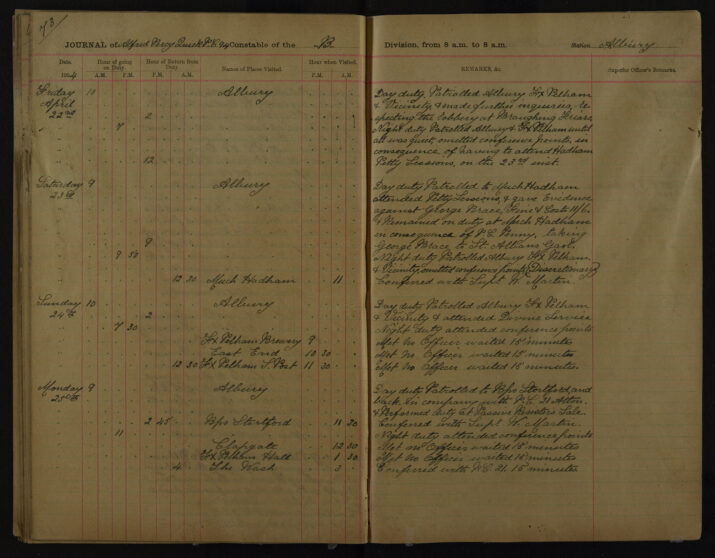 73
JOURNAL of Alfred Percy Quick P.C. 94 Constable of the B Division, from 8 a.m. to 8 a.m. Station Albury
Date. Hour of going on Duty. Hour of Return from Duty Names of Places Visited. Hour when Visited. REMARKS, &c. Superior Officer's Remarks.
1904 A.M. P.M. A.M. P.M. P.M. A.M.
Friday 10 Albury Day duty, Patrolled Albury Fx Pelham
April & Vicinity, & made further inquiries, re-
22nd 2 specting the robbery at Braughing
7 Night duty Patrolled Albury & Fx Pelham until
all was quiet, omitted conference points, in
consequence of having to attend Hadham
12 Petty Sessions, on the 23rd inst.
Saturday 9 Albury Day duty Patrolled to Much Hadham
23rd attended Petty Sessions, & gave Evidence
against George Brace, Fine & Costs 11/6.
& Remained on duty at Much Hadham
in consequence of P.C. Penny, taking
9 George Brace to St. Albans Gaol.
9 50 Night duty Patrolled Albury Fx Pelham,
& Vicinity, omitted conference points (Discretionary)
12 30 Much Hadham 11 Conferred with Supt. W. Martin
Sunday 10 Albury Day duty Patrolled Albury Fx Pelham
24th 2 & Vicinity & attended Divine Service
7 30 Night duty attended conference points
Fx Pelham Brewery 9 Met No Officer waited 15 minutes
East End 10 30 Met No Officer waited 15 minutes
12 30 Fx Pelham S. Post 11 30 Met No Officer waited 15 minutes.
Monday 9 Albury Day duty Patrolled to Bps Stortford and
25th back in company with P.C. 21 Alton.
& Performed duty at Passive Resisters Sale
2 45 Bps Stortford 11 20 Conferred with Supt. W. Martin.
11 Night duty attended conference points
Clapgate 12 30 Met no Officer waited 15 minutes
Fx Pelham Hall 1 30 Met No Officer waited 15 minutes
4 The Wash 3 Conferred with P.C. 21. 15 minutes